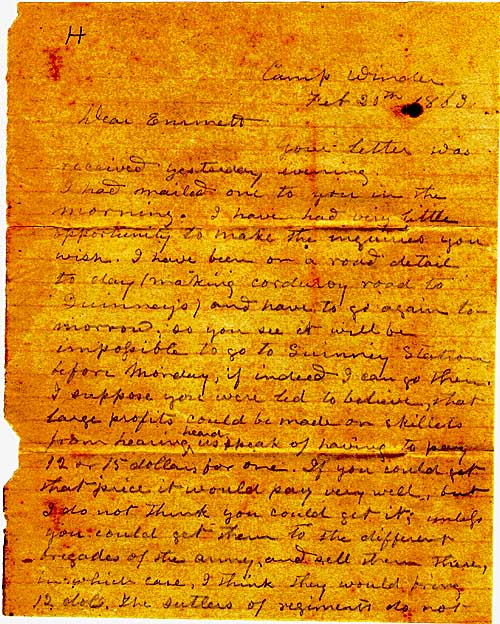 H
Camp Winder
Feb 20th 1863.
Dear Emmett
Your letter was
received yesterday evening
I had mailed one to you in the
morning. I have had very little
opportunity to make the inquiries you
wish. I have been on a road detail
to day (making corduroy road to
Guinney's) and have to go again to-
morrow, so you see it will be
impossible to go to Guinney Station
before Monday, if indeed I can go then.
I suppose you were led to believe, that
large profits could be made on skillets
from hearing us speak of having to pay
12 or 15 dollars for one. If you could get
that price it would pay very well, but
I do not think you could get it; unless
you could get them to the different
brigades of the army, and sell them there,
in which case, I think they would bring
12 dols. The sutlers of regiments do not